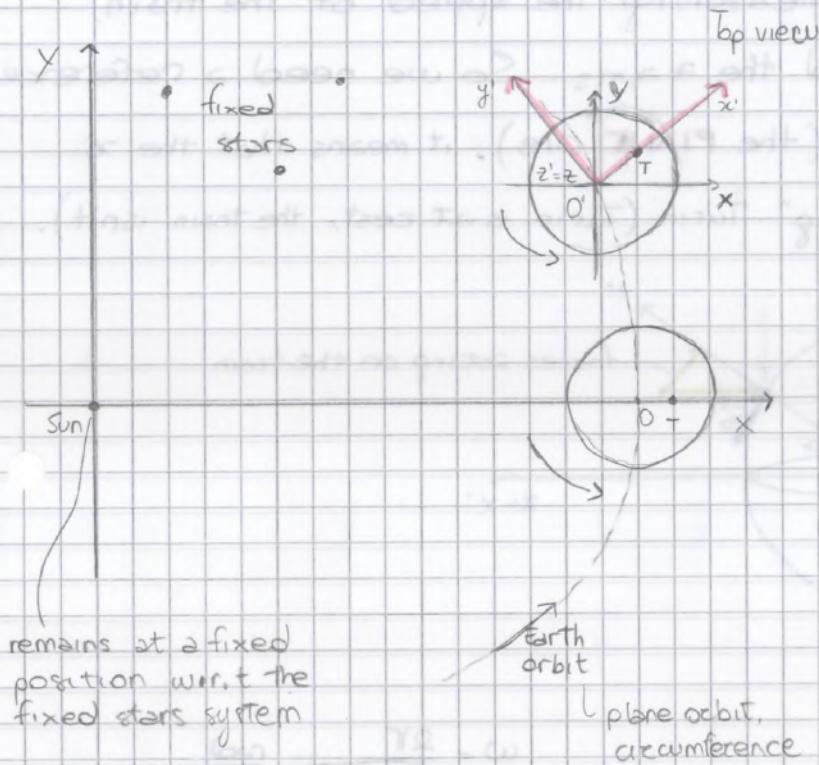 Top view
Y
fixed
stars
y'
y
x'
T
z'=z
O'
x
Sun
O
T
X
remains at a fixed
position w.r.t the
fixed stars system
Earth
orbit
plane orbit,
circumference